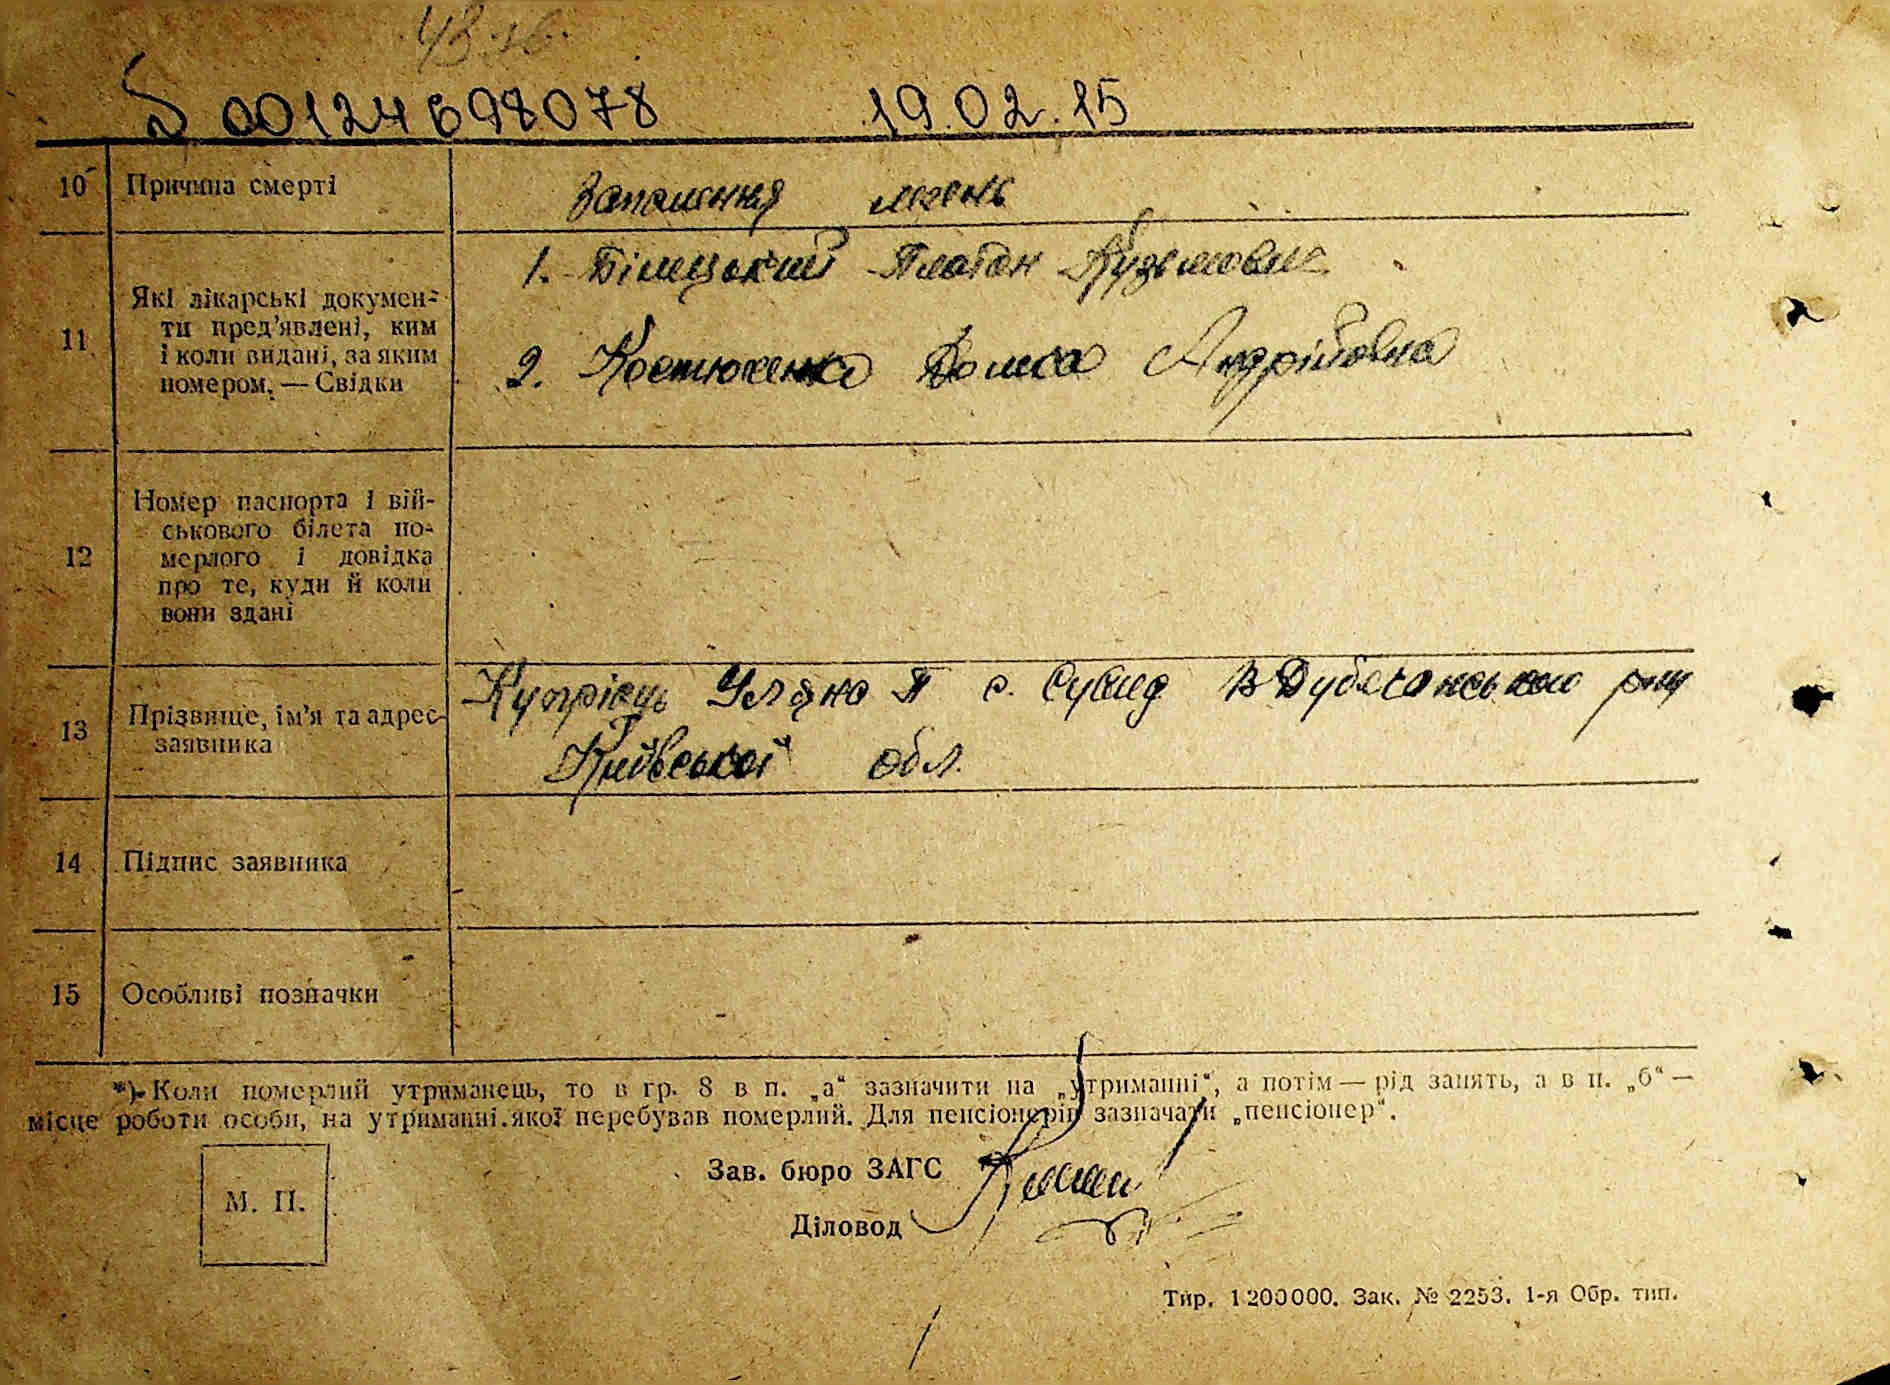 43 зв.
00124698078 19.02.15
10 Причина смерті Запалення легень
1. Білецький Платон Кузьмович
11 Які лікарські докумен-
ти пред'явлені, ким
і коли видані, за яким
номером. — Свідки
2. Костюченко Домка Андріївна
12 Номер паспорта і вій-
ськового білета по-
мерлого і довідка
про те, куди й коли
вони здані
13 Прізвище, ім'я та адрес
заявника
Купрієць Уляна П с. Сувид В Дубечанського р-ну
Київської обл.
14 Підпис заявника
15 Особливі позначки
*) Коли померлий утриманець, то в гр. 8 в п. „а“ зазначити на „утриманні“, а потім — рід занять, а в п. „б“ —
місце роботи особи, на утриманні якої перебував померлий. Для пенсіонерів зазначати „пенсіонер“.
М. П.
Зав. бюро ЗАГС
Діловод
Тир. 1200000. Зак. № 2253. 1-я Обр. тип.